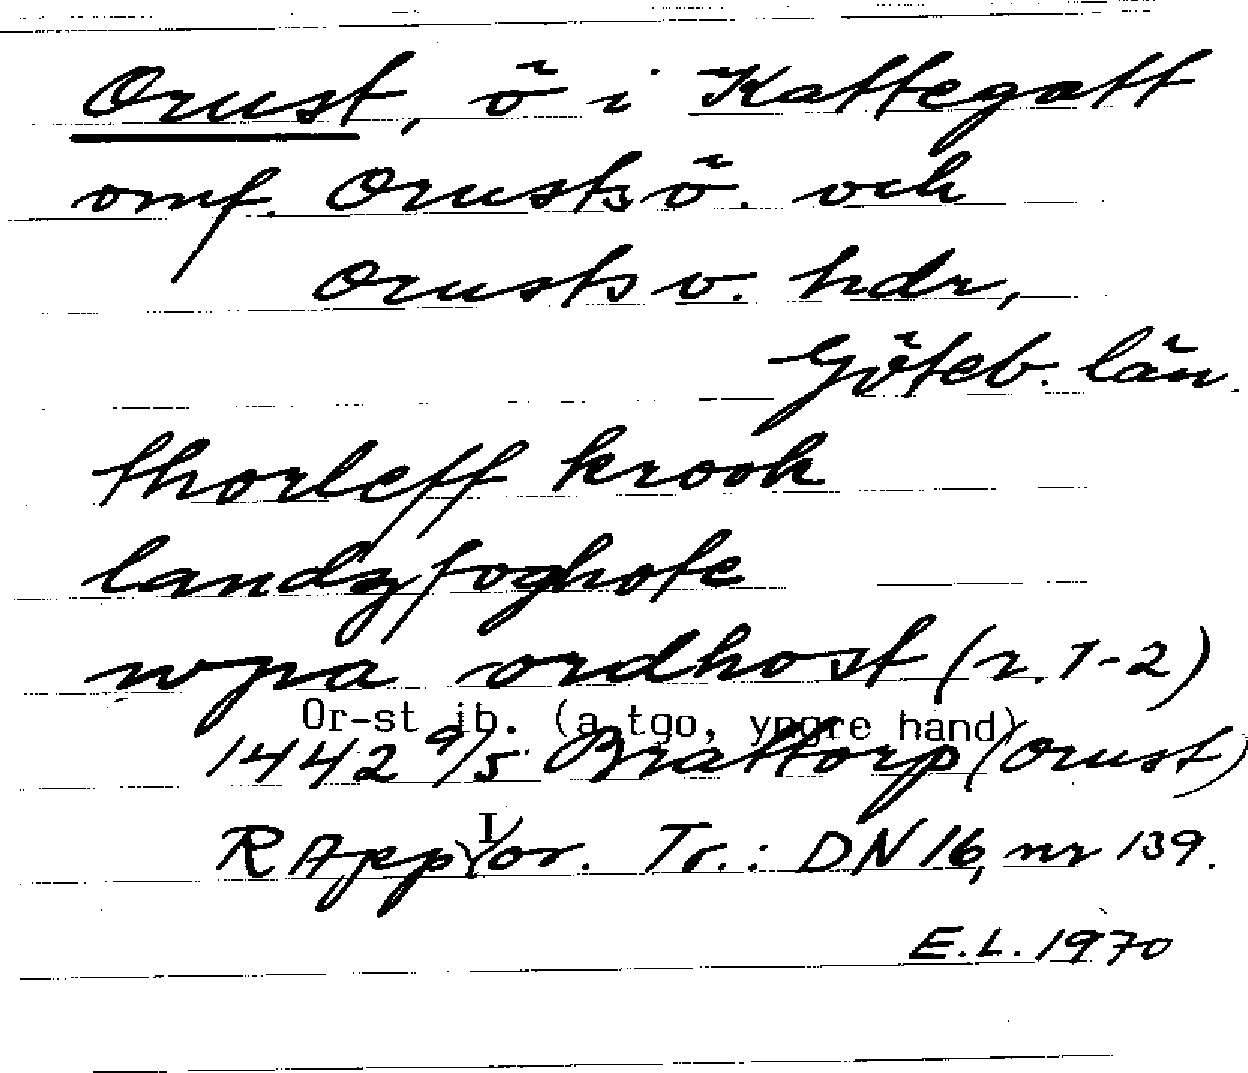 Orust, ö i Kattegatt
omf. Orusts ö. och
Orusts v. hdr,
Göteb. län.
thorleff krook
landzfoghote
wpa ordhost (r. 1-2)
Or-st ib. (a tgo, yngre hand)
1442 9/5 Brattorp (Orust)
RAppY I or. Tr.: DN 16, nr 139.
E.L. 1970